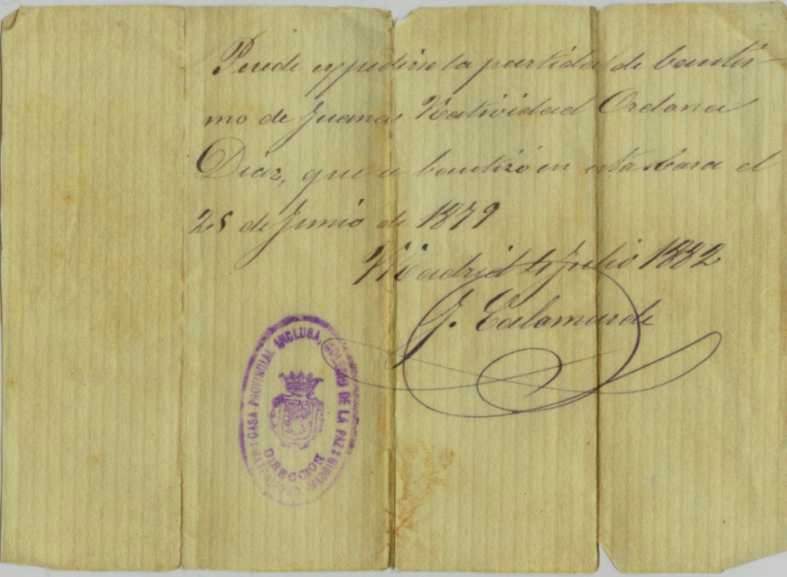 Puede expedirse la partida de bautis-
mo de Juana Natividad Ordana
Diaz, que se bautizó en esta Casa el
25 de Junio de 1879
Madrid 4 Julio 1882
J. Calamarde
CASA PROVINCIAL INCLUSA, COLEGIO DE LA PAZ
DIRECCION